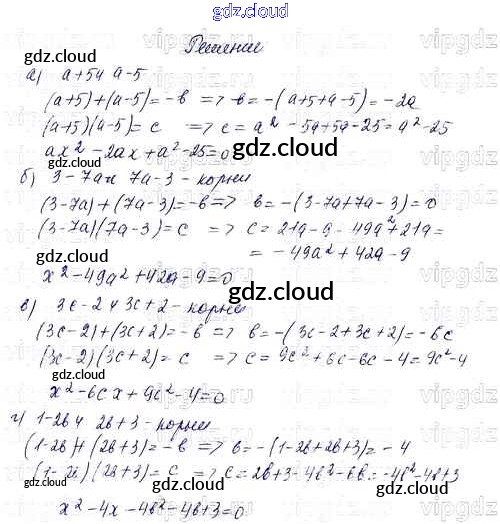 gdz.cloud
Решение
gdz.cloud
а) a+5 и a-5
(a+5)+(a-5)=-b => b=-(a+5+a-5)=-2a
(a+5)(a-5)=c => c=a²-5a+5a-25=a²-25
ax²-2ax+a²-25=0
gdz.cloud
б) 3-7a и 7a-3 - корни
gdz.cloud
(3-7a)+(7a-3)=-b => b=-(3-7a+7a-3)=0
(3-7a)(7a-3)=c => c=21a-9-49a²+21a=
gdz.cloud
=-49a²+42a-9
x²-49a²+42a-9=0
gdz.cloud
в) 3c-2 и 3c+2 - корни
gdz.cloud
(3c-2)+(3c+2)=-b => b=-(3c-2+3c+2)=-6c
(3c-2)(3c+2)=c => c=9c²+6c-6c-4=9c²-4
gdz.cloud
x²-6cx+9c²-4=0
gdz.cloud
г) 1-2b и 2b+3 - корни
(1-2b)+(2b+3)=-b => b=-(1-2b+2b+3)=-4
(1-2b)(2b+3)=c => c=2b+3-4b²-6b=-4b²-4b+3
gdz.cloud
gdz.cloud
x²-4x-4b²-4b+3=0